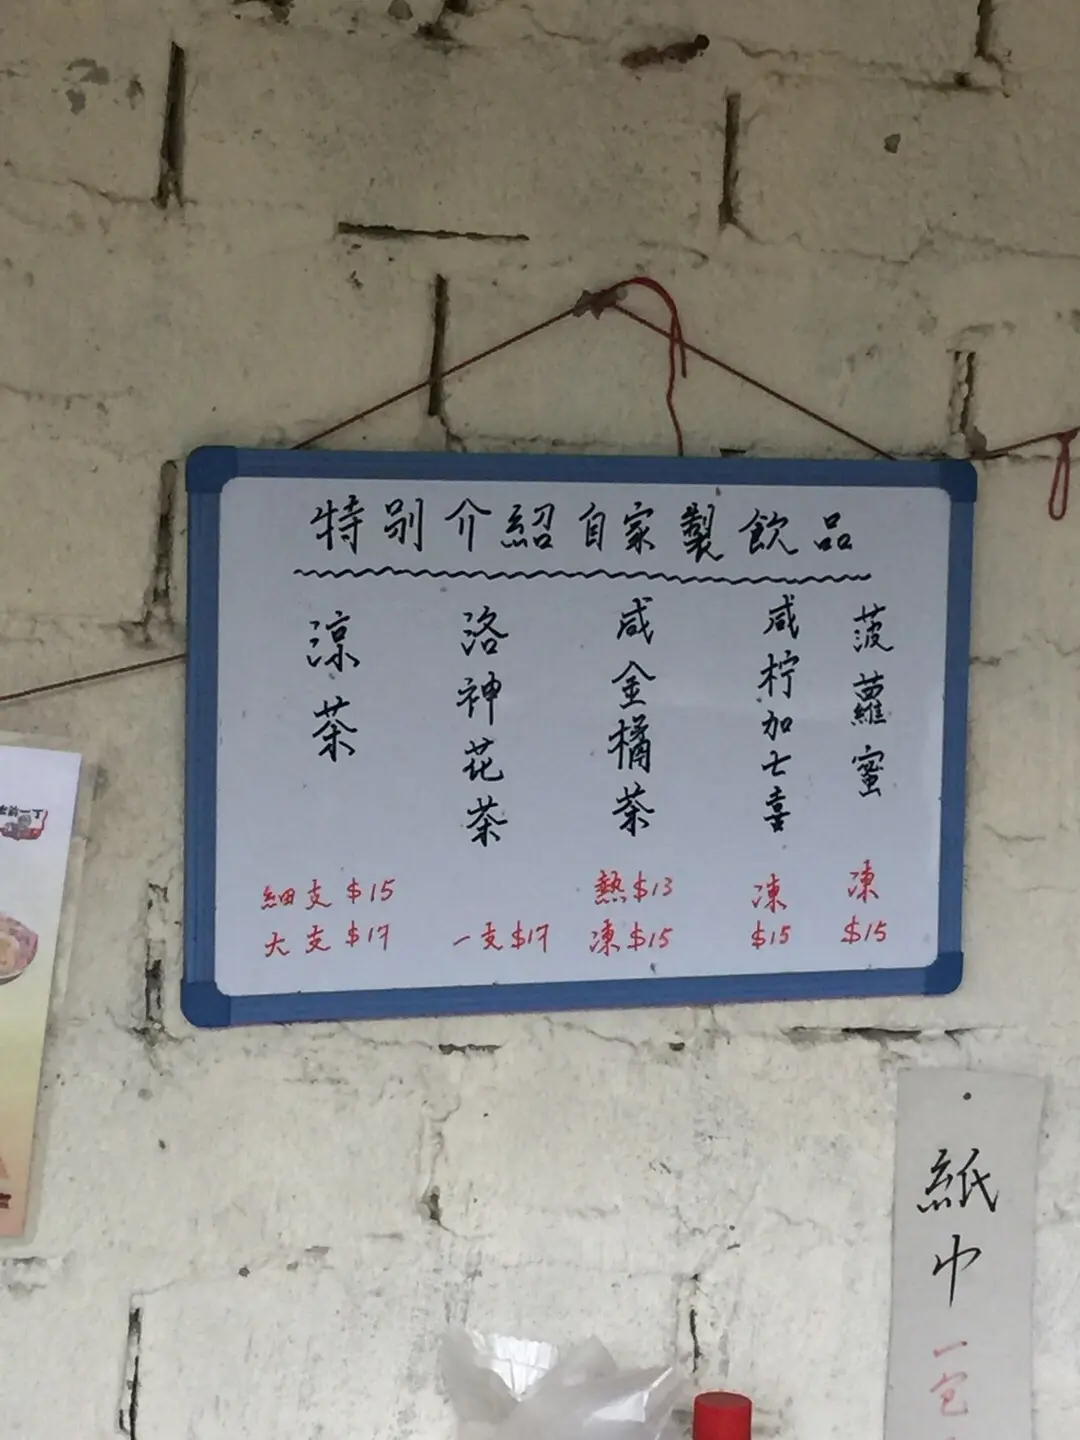 特别介紹自家製飲品
涼茶
細支 $15
大支 $17
洛神花茶
一支$17
咸金橘茶
熱$13
凍$15
咸柠加七喜
凍
$15
菠蘿蜜
凍
$15
紙巾
一包